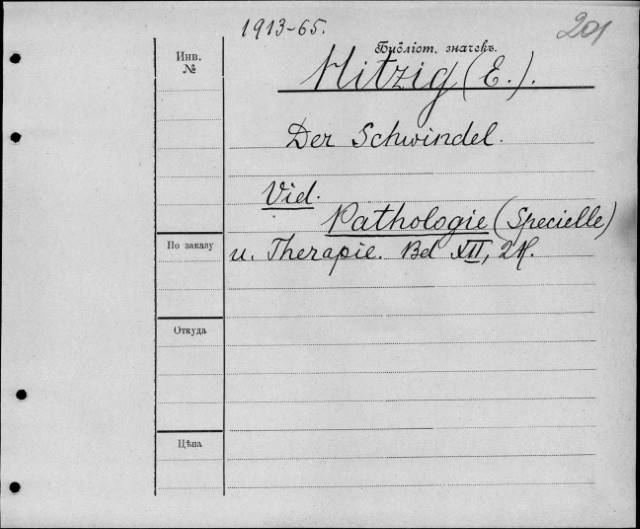 1913-65.
201
Инв.
№
Библіот. значекъ.
Hitzig (E.).
Der Schwindel.
Vid.
Pathologie (Specielle)
По заказу
u. Therapie. Bd XII, 2H.
Откуда
Цѣна